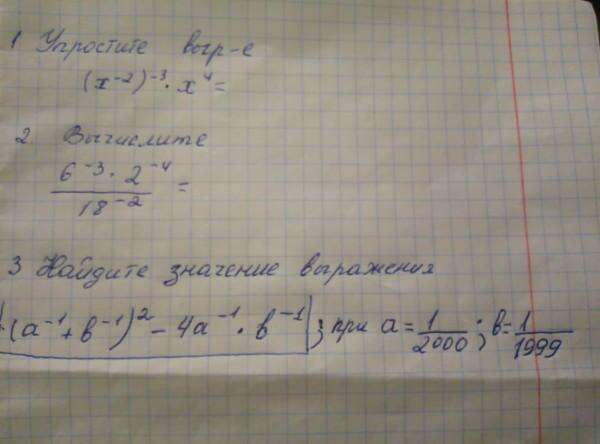 1 Упростите выр-е
(x⁻²)⁻³ · x⁴ =
2. Вычислите
6⁻³ · 2⁻⁴ / 18⁻² =
3 Найдите значение выражения
(a⁻¹ + b⁻¹)² − 4a⁻¹ · b⁻¹ ; при a = 1/2000 ; b = 1/1999